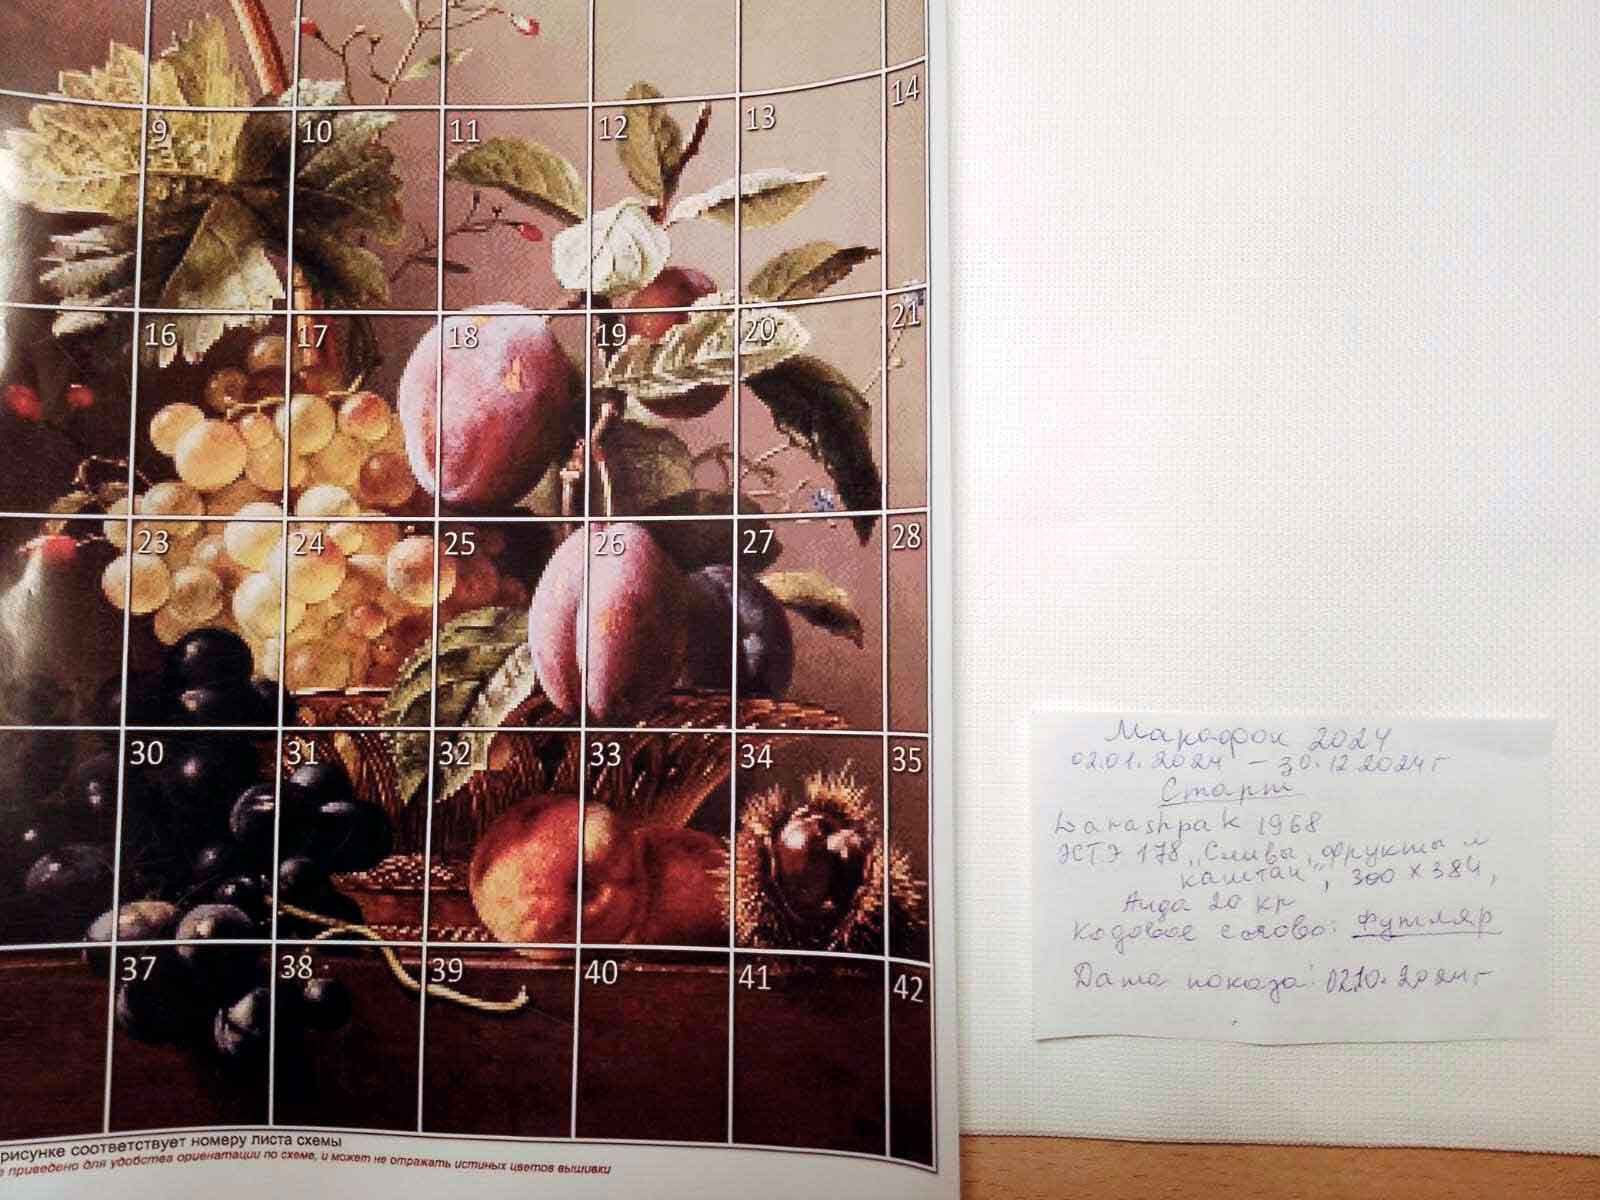 14
9 10 11 12 13
16 17 18 19 20 21
23 24 25 26 27 28
30 31 32 33 34 35
37 38 39 40 41 42
рисунке соответствует номеру листа схемы
приведено для удобства ориентации по схеме, и может не отражать истиных цветов вышивки
Марафон 2024
02.01.2024 – 30.12.2024г
Старт
Larashpak 1968
ЭСТЭ 178 „Сливы, фрукты и
каштан", 300 x 384,
Аида 20 кр
Кодовое слово: футляр
Дата показа: 02.10.2024г